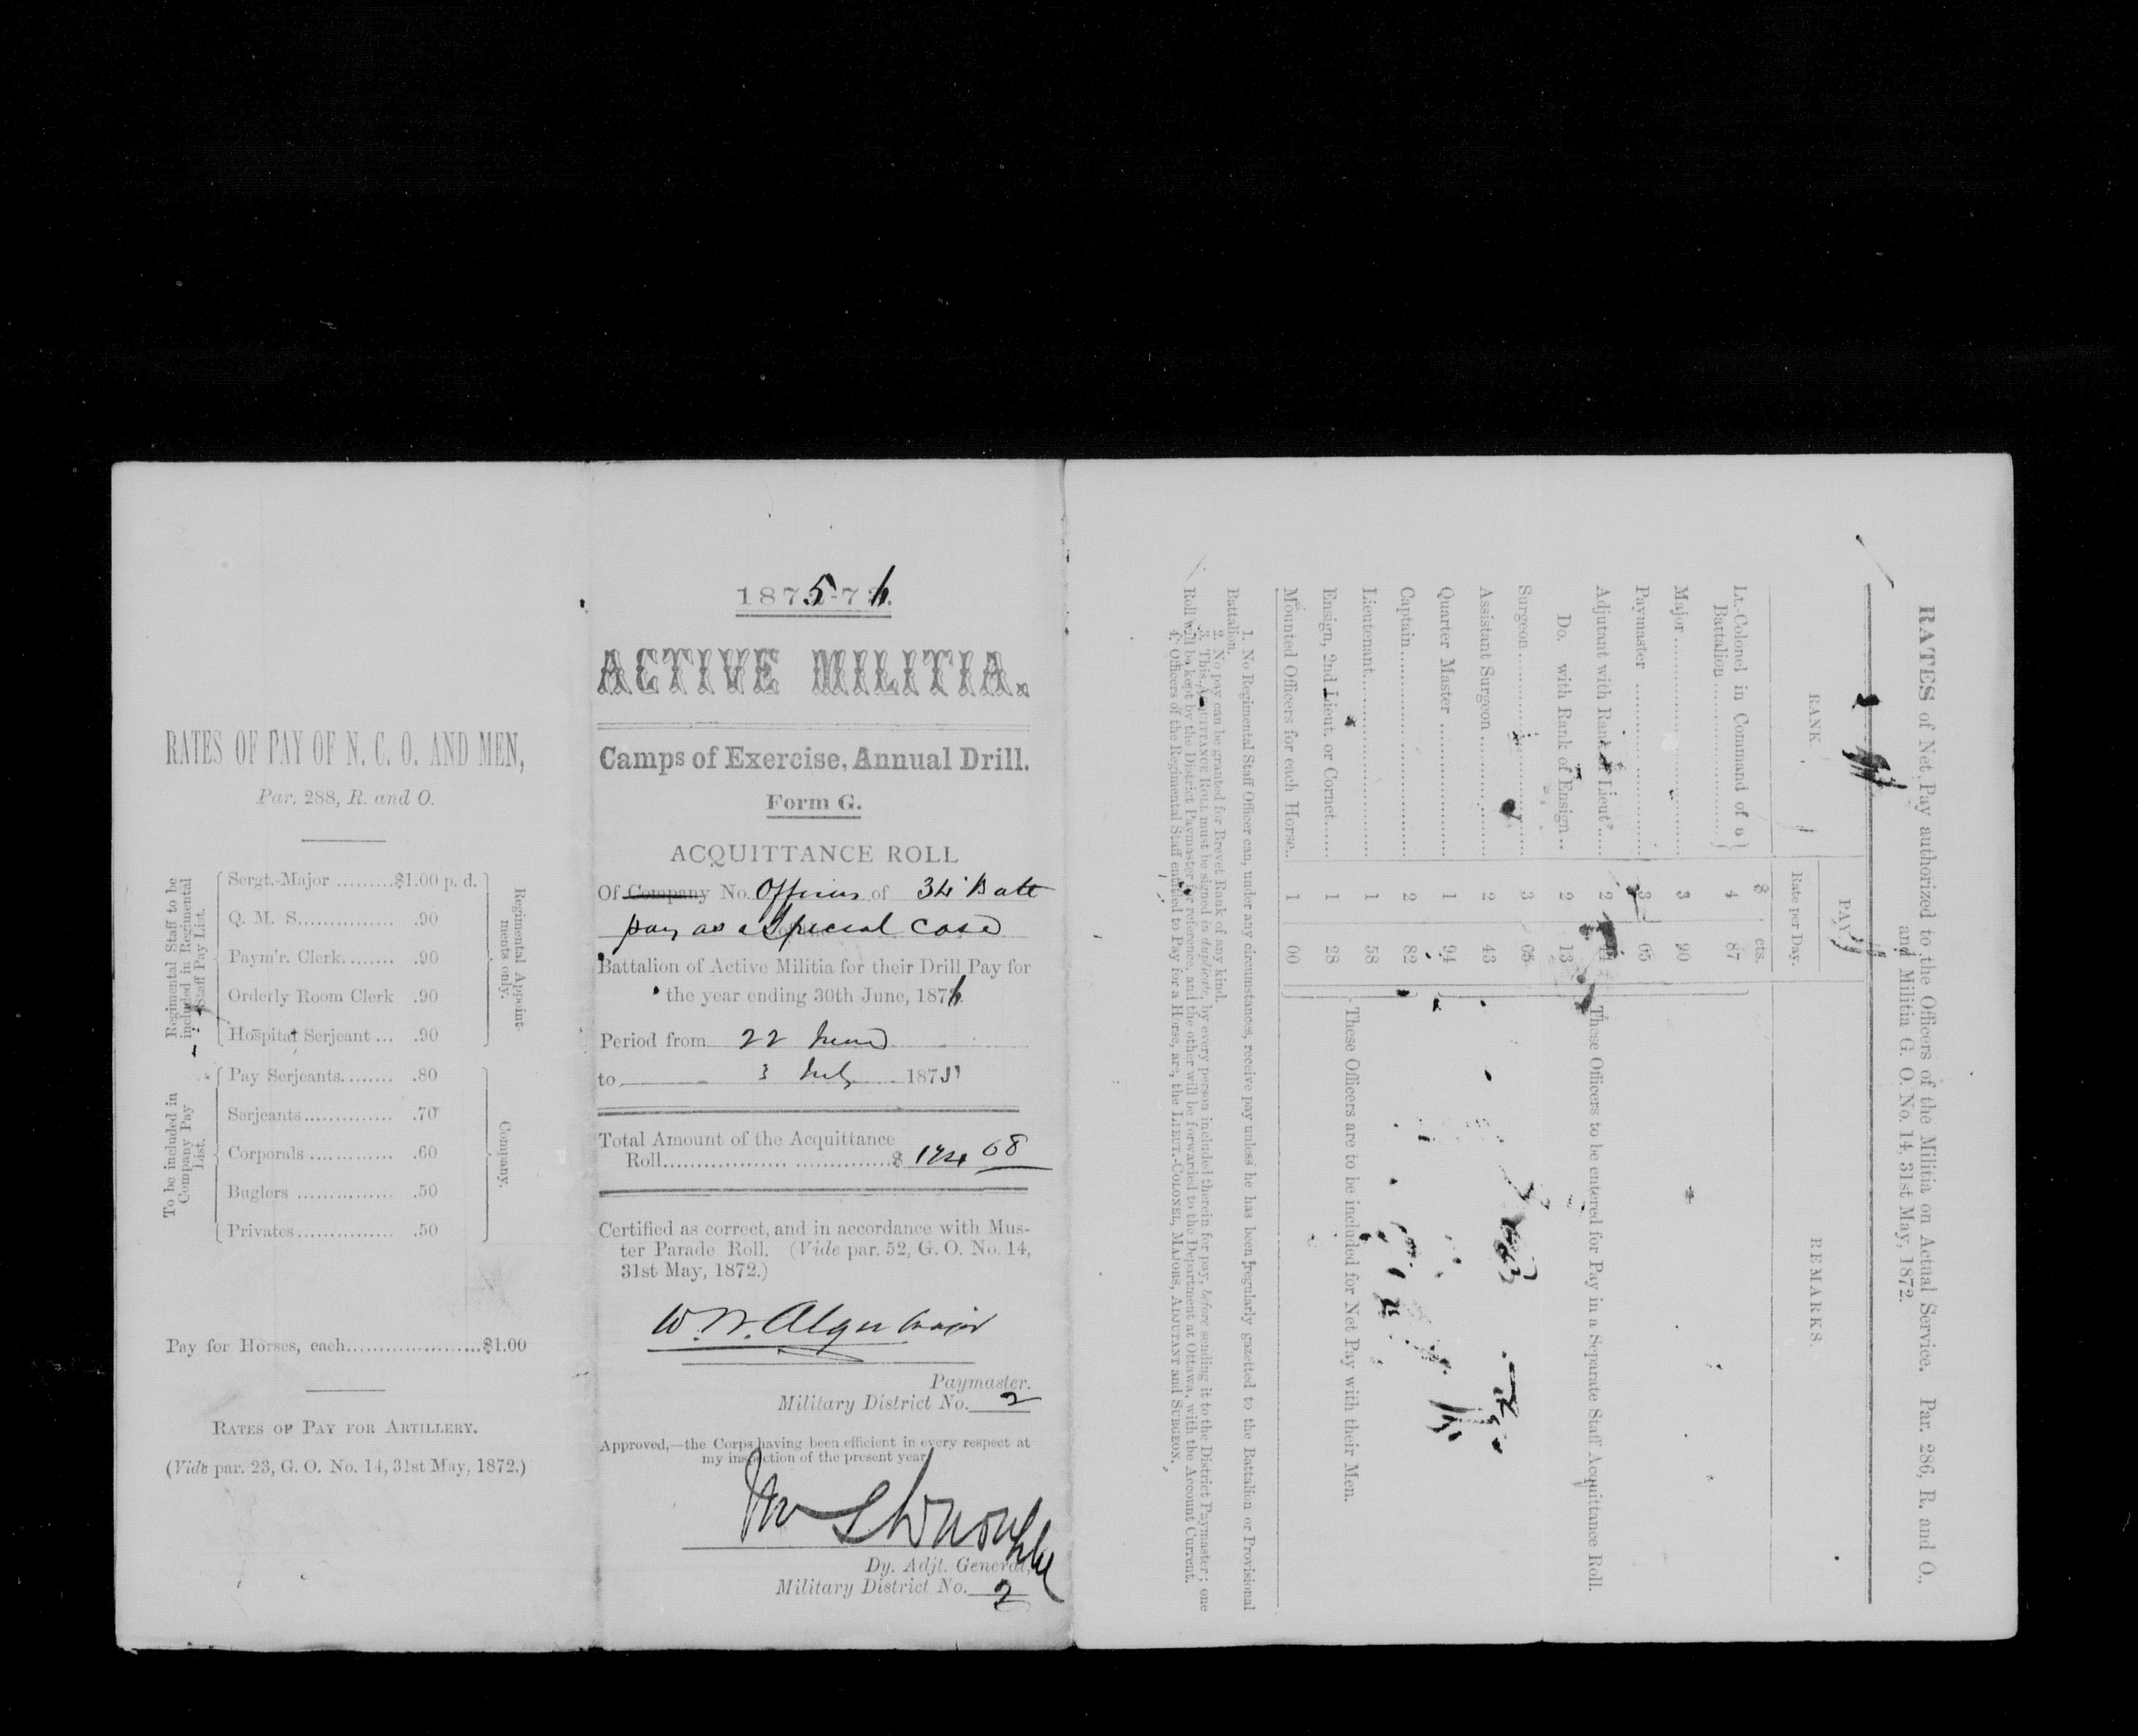 RATES OF PAY OF N. C. O. AND MEN,
Par. 288, R. and O.
Regimental Staff to be
included in Regimental
Staff Pay List.
Sergt.-Major .........$1.00 p. d.
Q. M. S............... .90
Paym'r. Clerk........ .90
Orderly Room Clerk .90
Hospital Serjeant ... .90
Regimental Appoint-
ments only.
To be included in
Company Pay
List.
Pay Serjeants........ .80
Serjeants.............. .70
Corporals ............. .60
Buglers ............... .50
Privates............... .50
Company.
Pay for Horses, each.....................$1.00
RATES OF PAY FOR ARTILLERY.
(Vide par. 23, G. O. No. 14, 31st May, 1872.)
1875-76.
ACTIVE MILITIA.
Camps of Exercise, Annual Drill.
Form G.
ACQUITTANCE ROLL
Of Company No. Officers of 34 Batt
pay as a Special Case
Battalion of Active Militia for their Drill Pay for
the year ending 30th June, 1876.
Period from 22 June
to 3 July 1875
Total Amount of the Acquittance
Roll.................. ..............$ 68
Certified as correct, and in accordance with Mus-
ter Parade Roll. (Vide par. 52, G. O. No. 14,
31st May, 1872.)
W. N. Alger Major
Paymaster.
Military District No. 2
Approved,—the Corps having been efficient in every respect at
my inspection of the present year
Dy. Adjt. General,
Military District No. 2
RATES of Net Pay authorized to the Officers of the Militia on Actual Service. Par. 286, R. and O.,
and Militia G. O. No. 14, 31st May, 1872.
RANK. PAY. REMARKS.
Rate per Day.
$ cts.
Lt.-Colonel in Command of a
Battalion ............... 4 87
Major ..................... 3 90
Paymaster ................. 3 05
Adjutant with Rank of Lieut .... 2
Do. with Rank of Ensign .. 2 13
Surgeon ................... 3 65
Assistant Surgeon ............. 2 43
Quarter Master ................ 1 94
Captain ................... 2 82
Lieutenant................. 1 58
Ensign, 2nd Lieut. or Cornet...... 1 28
Mounted Officers for each Horse.. 1 00
These Officers to be entered for Pay in a Separate Staff Acquittance Roll.
These Officers are to be included for Net Pay with their Men.
1. No Regimental Staff Officer can, under any circumstances, receive pay unless he has been regularly gazetted to the Battalion or Provisional
Battalion.
2. No pay can be granted for Brevet Rank of any kind.
3. This ACQUITTANCE ROLL must be signed in duplicate, by every person included therein for pay, before sending it to the District Paymaster; one
Roll will be kept by the District Paymaster for reference, and the other will be forwarded to the Department at Ottawa, with the Account Current.
4. Officers of the Regimental Staff entitled to Pay for a Horse, are, the LIEUT.-COLONEL, MAJORS, ADJUTANT and SURGEON.